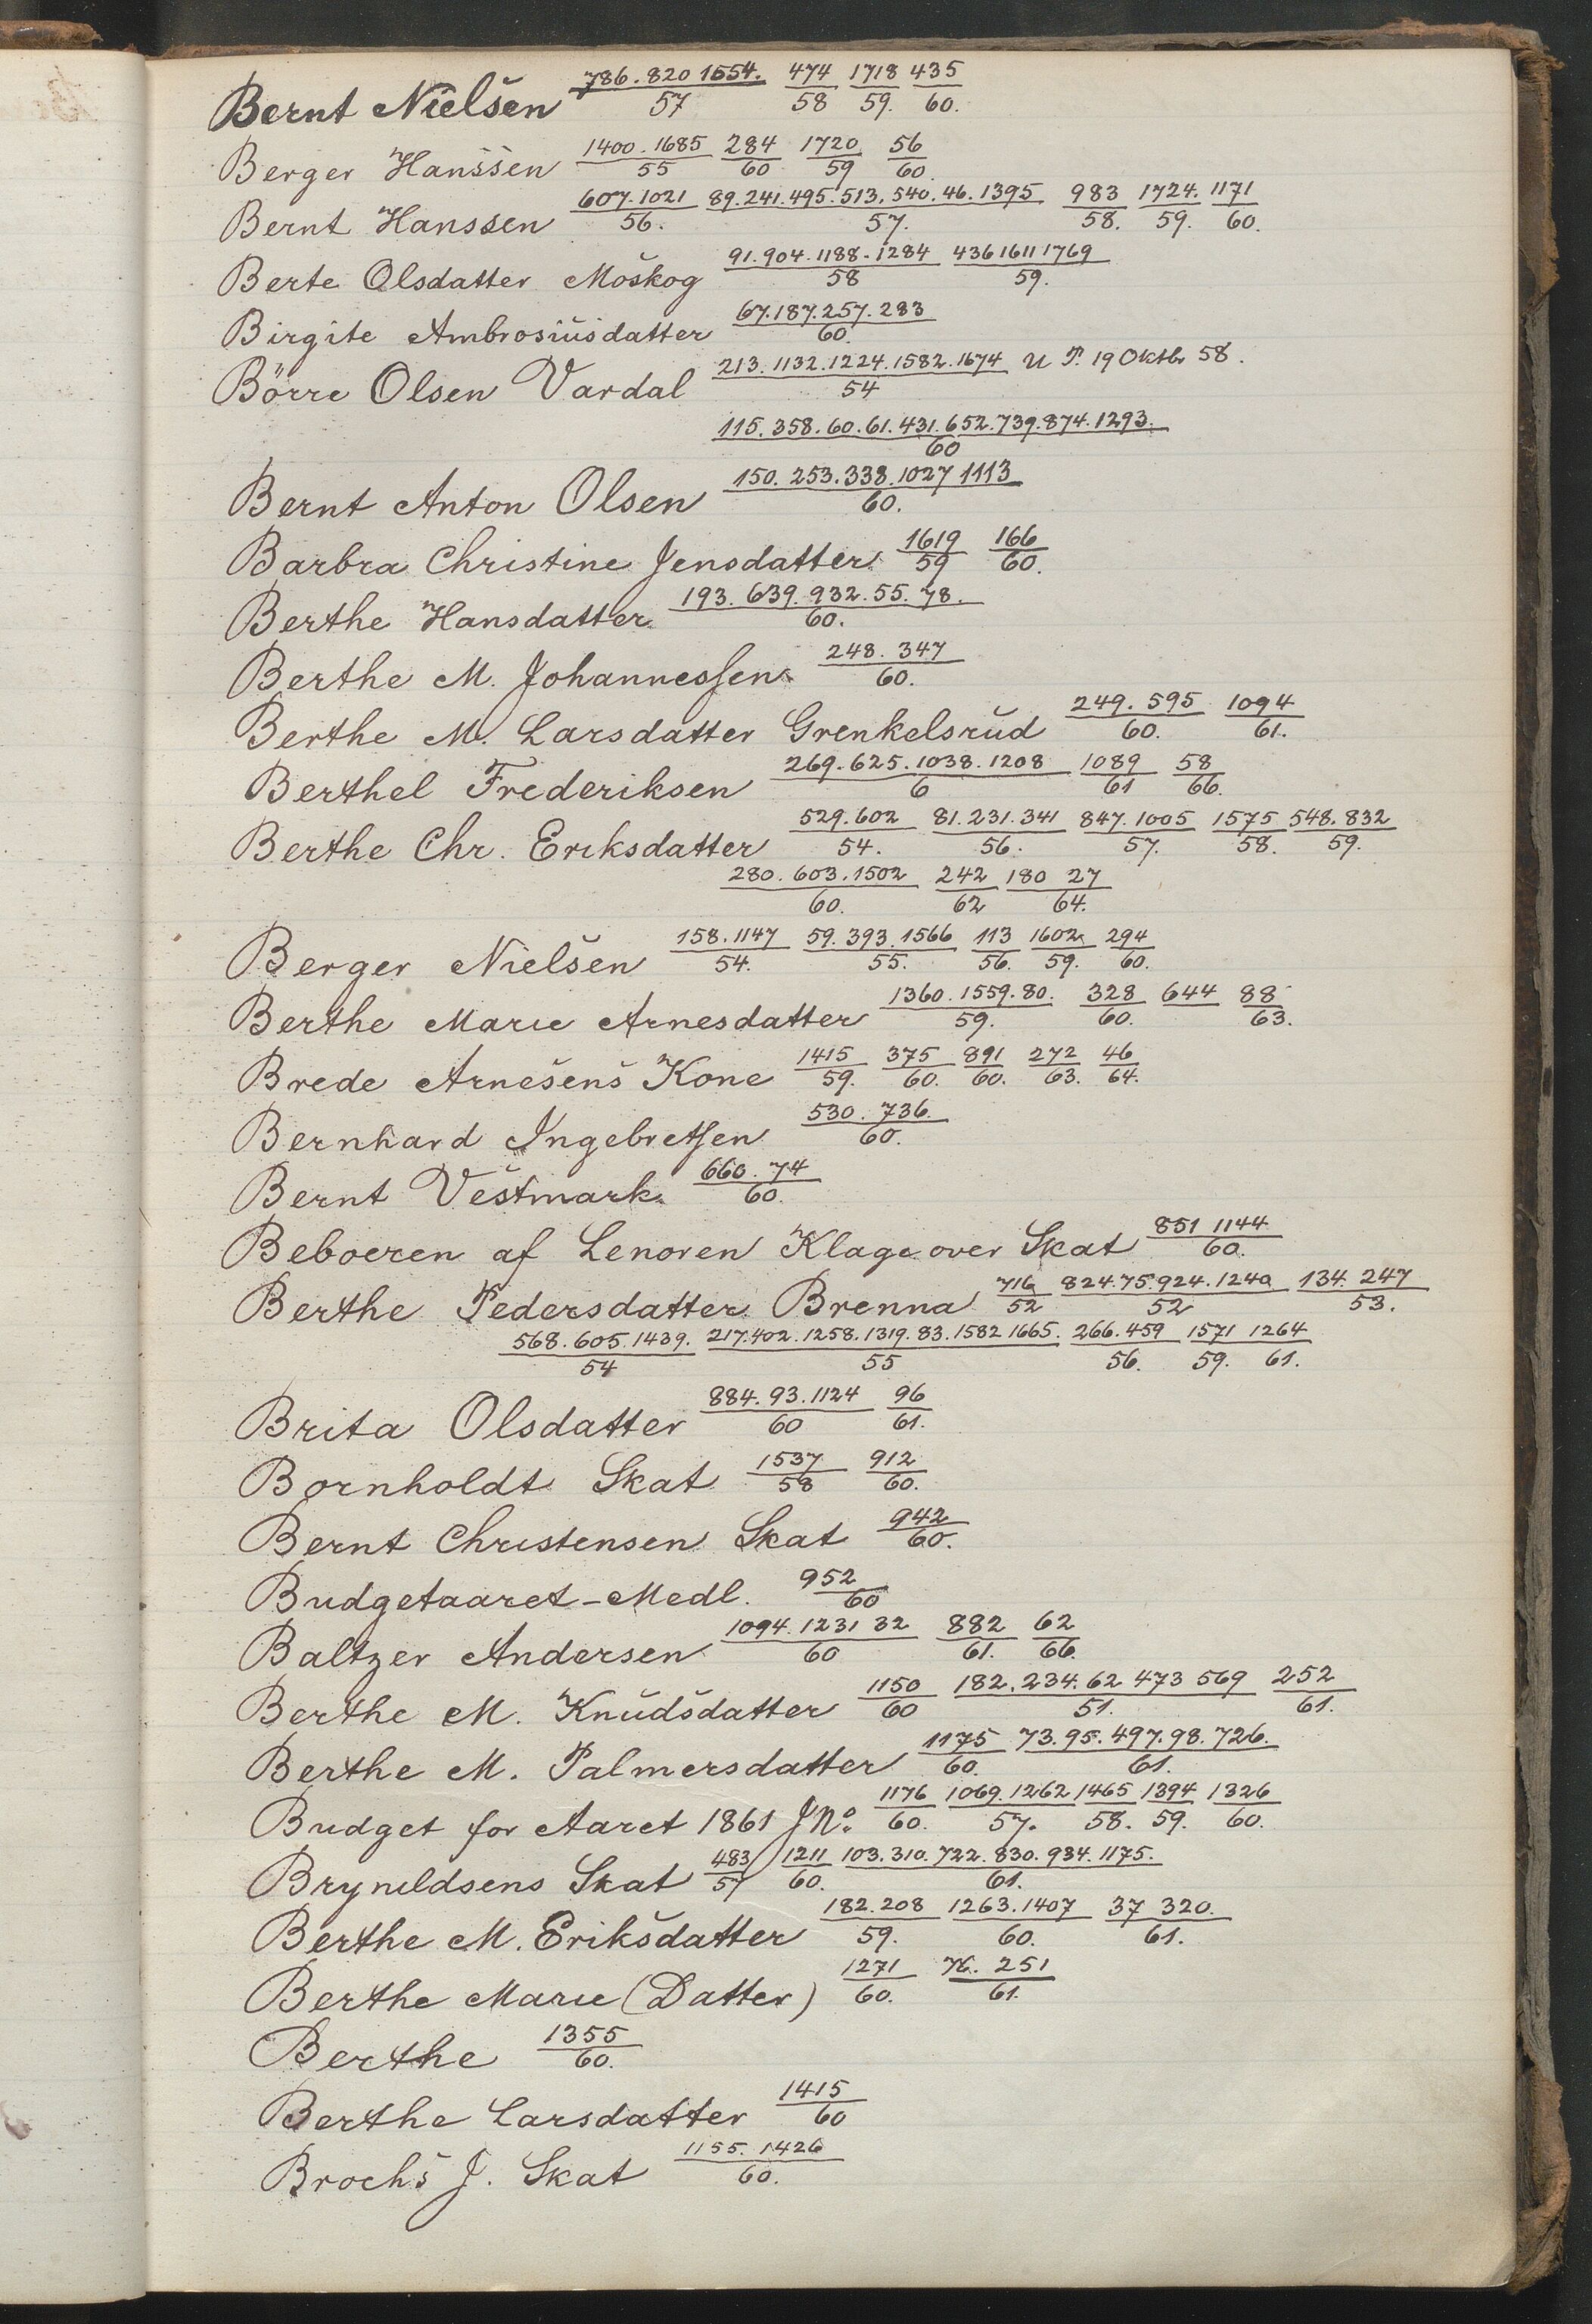 Bernt Nielsen 786.820 1554./57 474/58 1718/59. 435/60.
Berger Hanssen 1400.1685/55 284/60 1720/59 56/60.
Bernt Hanssen 607.1021/56. 89.241.495.513.540.46.1395/57. 983/58. 1724./59. 1171/60.
Berte Olsdatter Moskog 91.904.1188-1284/58 436 1611 1769/59.
Birgite Ambrosiusdatter 67.187.257.283/60.
Börre Olsen Vardal 213.1132.1224.1582.1674/54 U P. 19 Oktbr 58.
115.358.60.61.431.652.739.874.1293./60
Bernt Anton Olsen 150.253.338.1027 1113/60.
Barbra Christine Jensdatter 1619/59 166/60.
Berthe Hansdatter 193.639.932.55.78./60.
Berthe M. Johannessen 248.347/60.
Berthe M. Larsdatter Grenkelsrud 249.595/60. 1094/61.
Berthel Frederiksen 269.625.1038.1208/6 1089/61 58/66.
Berthe Chr. Eriksdatter 529.602/54. 81.231.341/56. 847.1005/57. 1575/58. 548.832/59.
280.603.1502/60. 242/62 180 27/64.
Berger Nielsen 158.1147/54. 59.393.1566/55. 113/56. 1602/59. 294/60.
Berthe Marie Arnesdatter 1360.1559.80./59. 328/60. 644 88/63.
Brede Arnesens Kone 1415/59. 375/60. 891/60. 272/63. 46/64.
Bernhard Ingebretsen 530.736./60.
Bernt Vestmark 660.74/60.
Beboeren af Lenoren Klage over Skat 851 1144/60.
Berthe Pedersdatter Brenna 716/52 824.75.924.1240/52 134.247/53.
568.605.1439./54 217.402.1258.1319.83.1582 1665./55 266.459/56. 1571/59. 1264/61.
Brita Olsdatter 884.93.1124/60 96/61.
Bornholdt Skat 1537/58 912/60.
Bernt Christensen Skat 942/60.
Budgetaaret-Medl. 952/60
Baltzer Andersen 1094.1231 32/60 882/61. 62/66.
Berthe M. Knudsdatter 1150/60 182.234.62 473 569/51. 252/61.
Berthe M. Palmersdatter 1175/60. 73.95.497.98.726./61.
Budget for Aaret 1861 JNo. 1176/60. 1069.1262/57. 1465/58. 1394/59. 1326/60.
Bryneldsens Skat 483/57 1211/60. 103.310.722.830.934.1175./61.
Berthe M. Eriksdatter 182.208/59. 1263.1407/60. 37 320./61.
Berthe Marie (Datter) 1271/60. 76.251/61.
Berthe 1355/60.
Berthe Larsdatter 1415/60
Brochs J. Skat 1155.1426/60.